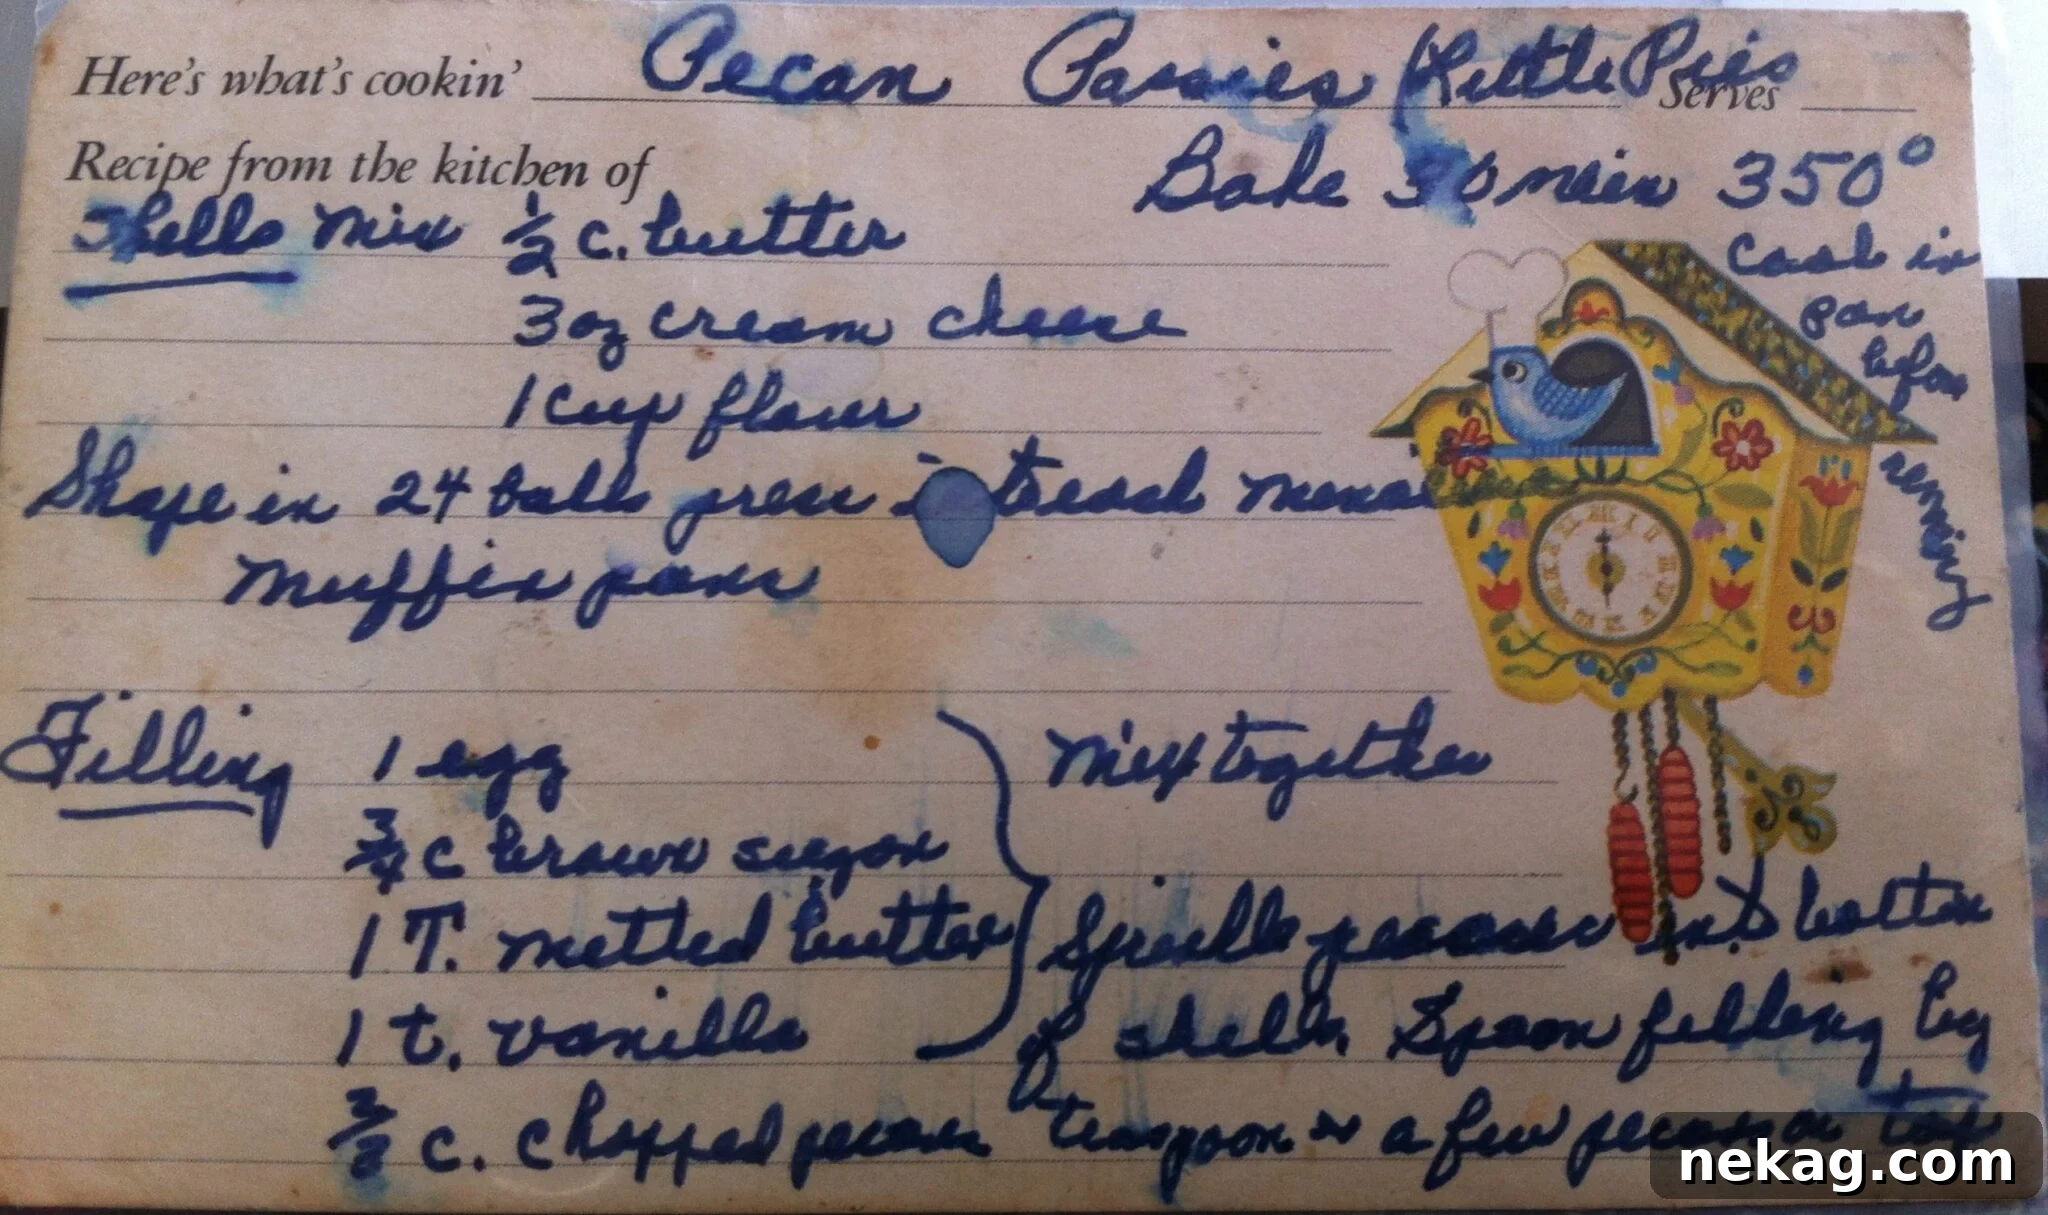 Here's what's cookin' Pecan Tassies (Little Pies
Serves
Recipe from the kitchen of
Bake 30 min 350°
Shells Mix 1/2 c. butter
Cool in
pan
before
removing
3 oz cream cheese
1 cup flour
Shape in 24 balls press into each
muffin pans
Filling 1 egg
Mix together
3/4 c brown sugar
1 T. melted butter
Sprinkle pecans in bottom
1 t. vanilla
of shells. Spoon filling by
c. chopped pecans
teaspoon a few pecans on top
nekag.com